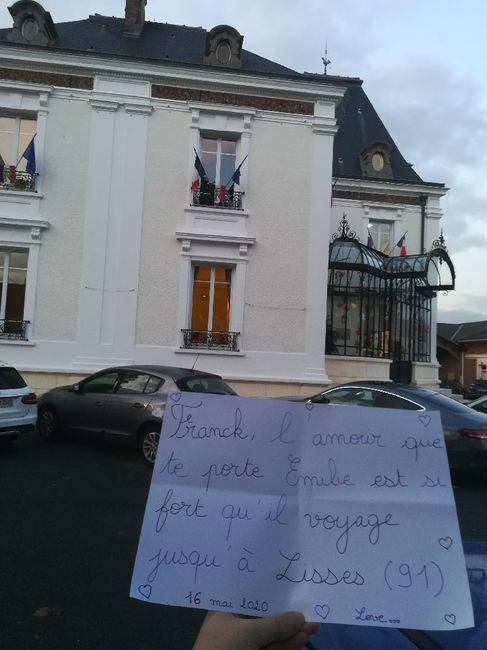 Franck, l'amour que
te porte Emilie est si
fort qu'il voyage
jusqu'à Lisses (91)
16 mai 2020
Love...